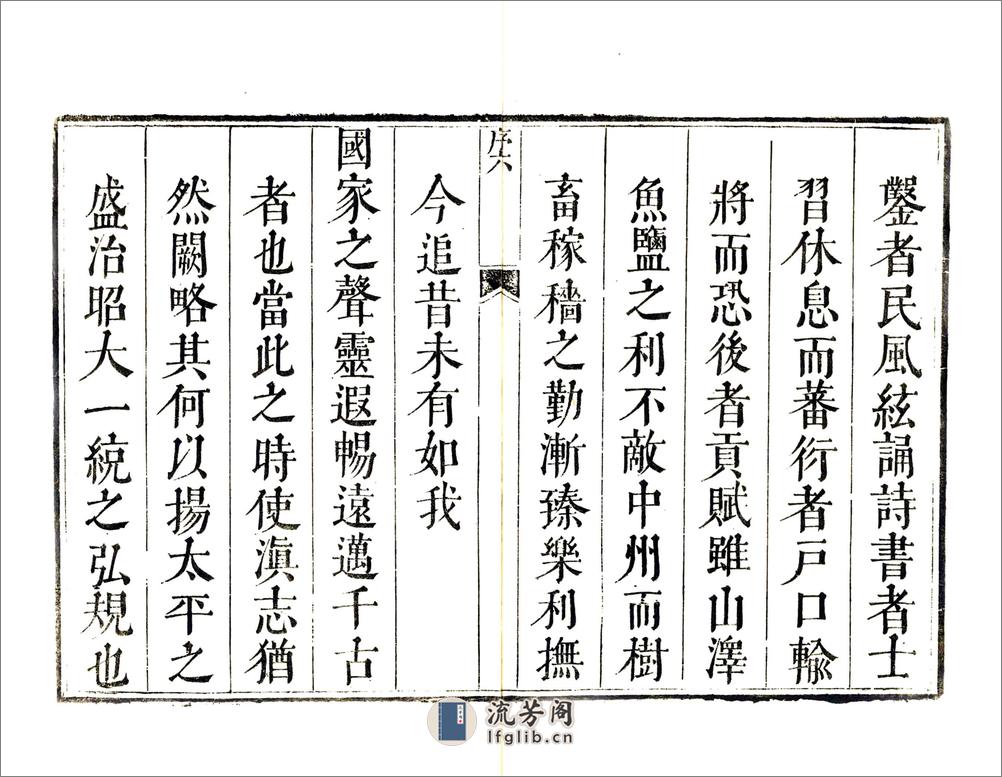 鑿者民風絃誦詩書者士
習休息而蕃衍者戸口輸
將而恐後者貢賦雖山澤
魚鹽之利不敵中州而樹
畜稼穡之勤漸臻樂利撫
序六
今追昔未有如我
國家之聲靈遐暢遠邁千古
者也當此之時使滇志猶
然闕略其何以揚太平之
盛治昭大一統之弘規也
流芳阁
lfglib.cn